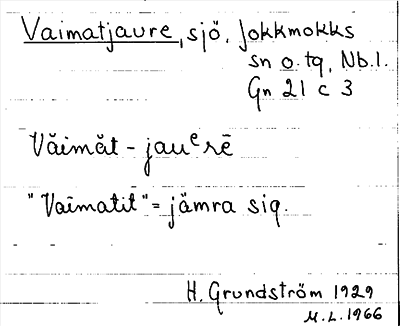 Vaimatjaure, sjö, Jokkmokks
sn o. tg, Nb.l.
Gn 21 c 3
Väimăt - jauᵉrē
"Vaimatit" = jämra sig.
H. Grundström 1929
M.L. 1966